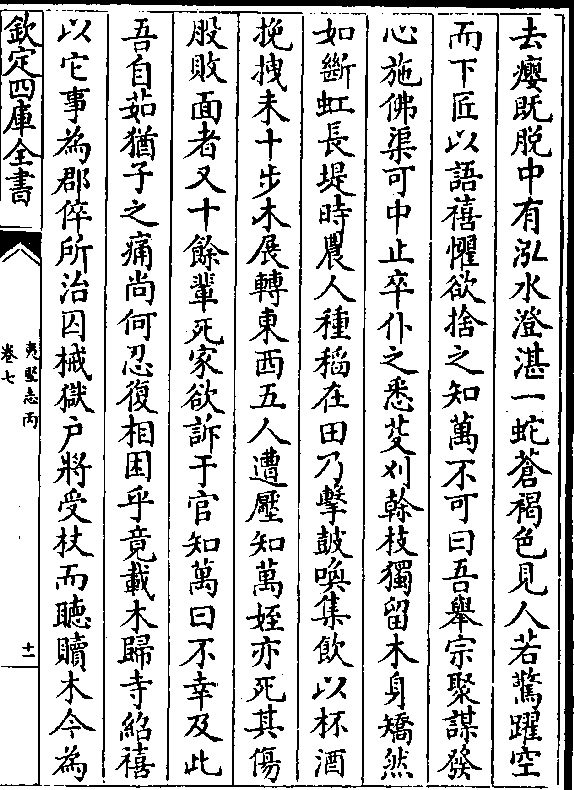 去癭既脱中有泓水澄湛一蛇蒼褐色見人若驚躍空
而下匠以語禧懼欲捨之知萬不可曰吾舉宗聚謀發
心施佛渠可中止卒仆之悉芟刈榦枝獨留木身矯然
如斷虹長堤時農人種稻在田乃擊鼓喚集飲以杯酒
挽拽未十步木展轉東西五人遭壓知萬姪亦死其傷
股敗面者又十餘輩死家欲訴于官知萬曰不幸及此
吾自茹猶子之痛尚何忍復相困乎竟載木歸寺紹禧
以它事為郡倅所治囚械獄户將受杖而聽贖木今為
欽定四庫全書
夷堅志丙
卷七
十一